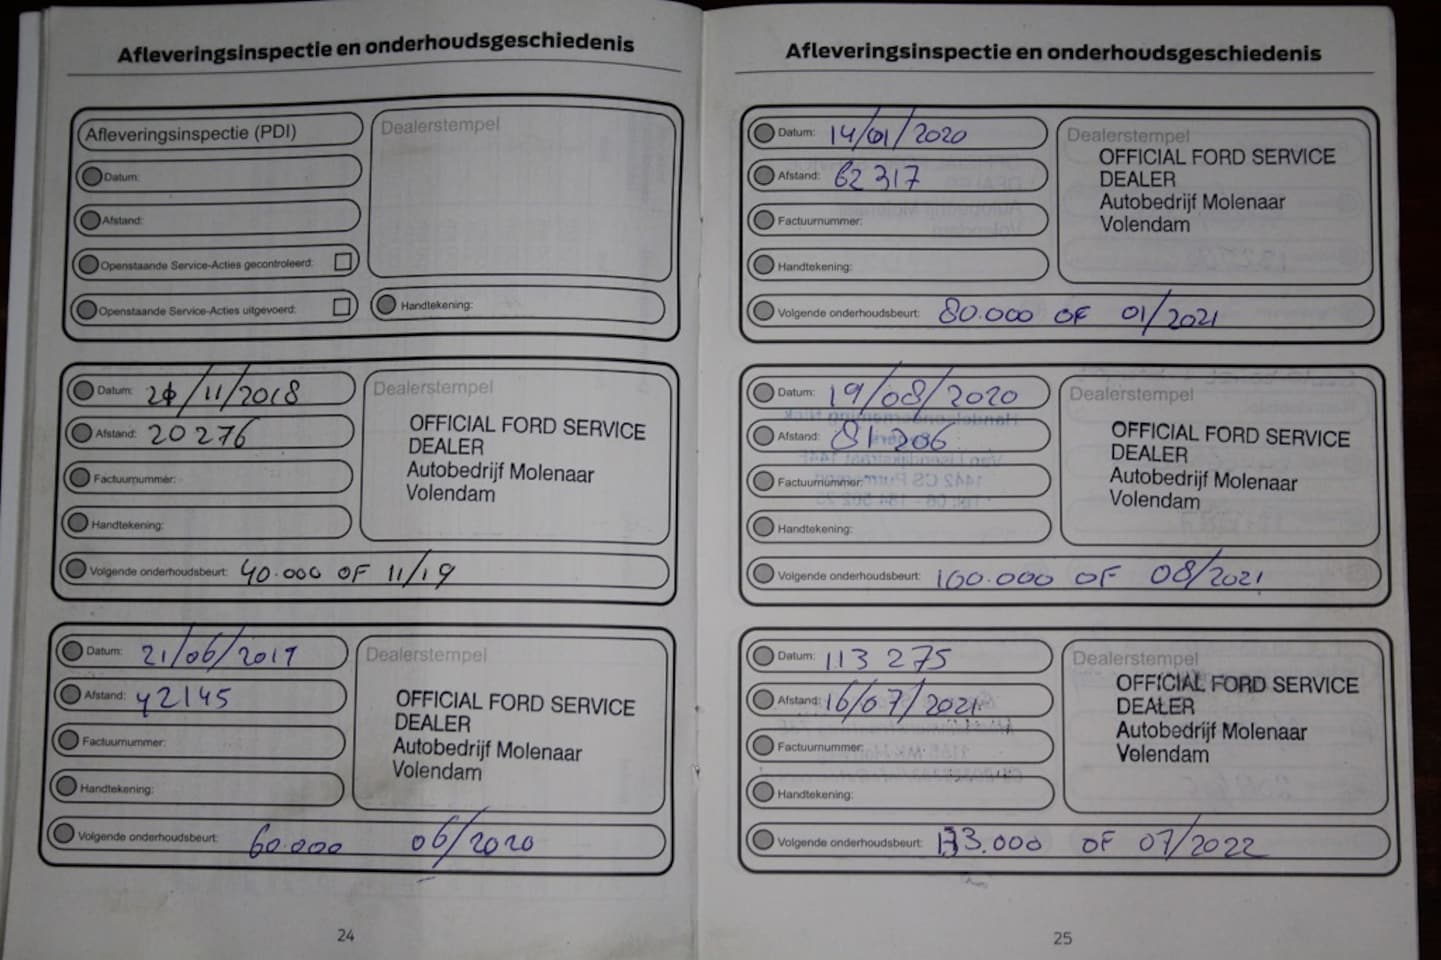 Afleveringsinspectie en onderhoudsgeschiedenis
Afleveringsinspectie (PDI)
Dealerstempel
Datum:
Afstand:
Openstaande Service-Acties gecontroleerd:
Openstaande Service-Acties uitgevoerd:
Handtekening:
Datum: 21/11/2018
Afstand: 20276
Factuurnummer:
Handtekening:
Dealerstempel
OFFICIAL FORD SERVICE
DEALER
Autobedrijf Molenaar
Volendam
Volgende onderhoudsbeurt: 40.000 OF 11/19
Datum: 21/06/2019
Afstand: 42145
Factuurnummer:
Handtekening:
Dealerstempel
OFFICIAL FORD SERVICE
DEALER
Autobedrijf Molenaar
Volendam
Volgende onderhoudsbeurt: 60.000 06/2020
24
Afleveringsinspectie en onderhoudsgeschiedenis
Datum: 14/01/2020
Afstand: 62317
Factuurnummer:
Handtekening:
Dealerstempel
OFFICIAL FORD SERVICE
DEALER
Autobedrijf Molenaar
Volendam
Volgende onderhoudsbeurt: 80.000 OF 01/2021
Datum: 19/08/2020
Afstand: 81206
Factuurnummer:
Handtekening:
Dealerstempel
OFFICIAL FORD SERVICE
DEALER
Autobedrijf Molenaar
Volendam
Volgende onderhoudsbeurt: 100.000 OF 08/2021
Datum: 113 275
Afstand: 16/07/2021
Factuurnummer:
Handtekening:
Dealerstempel
OFFICIAL FORD SERVICE
DEALER
Autobedrijf Molenaar
Volendam
Volgende onderhoudsbeurt: OF 07/2022
25